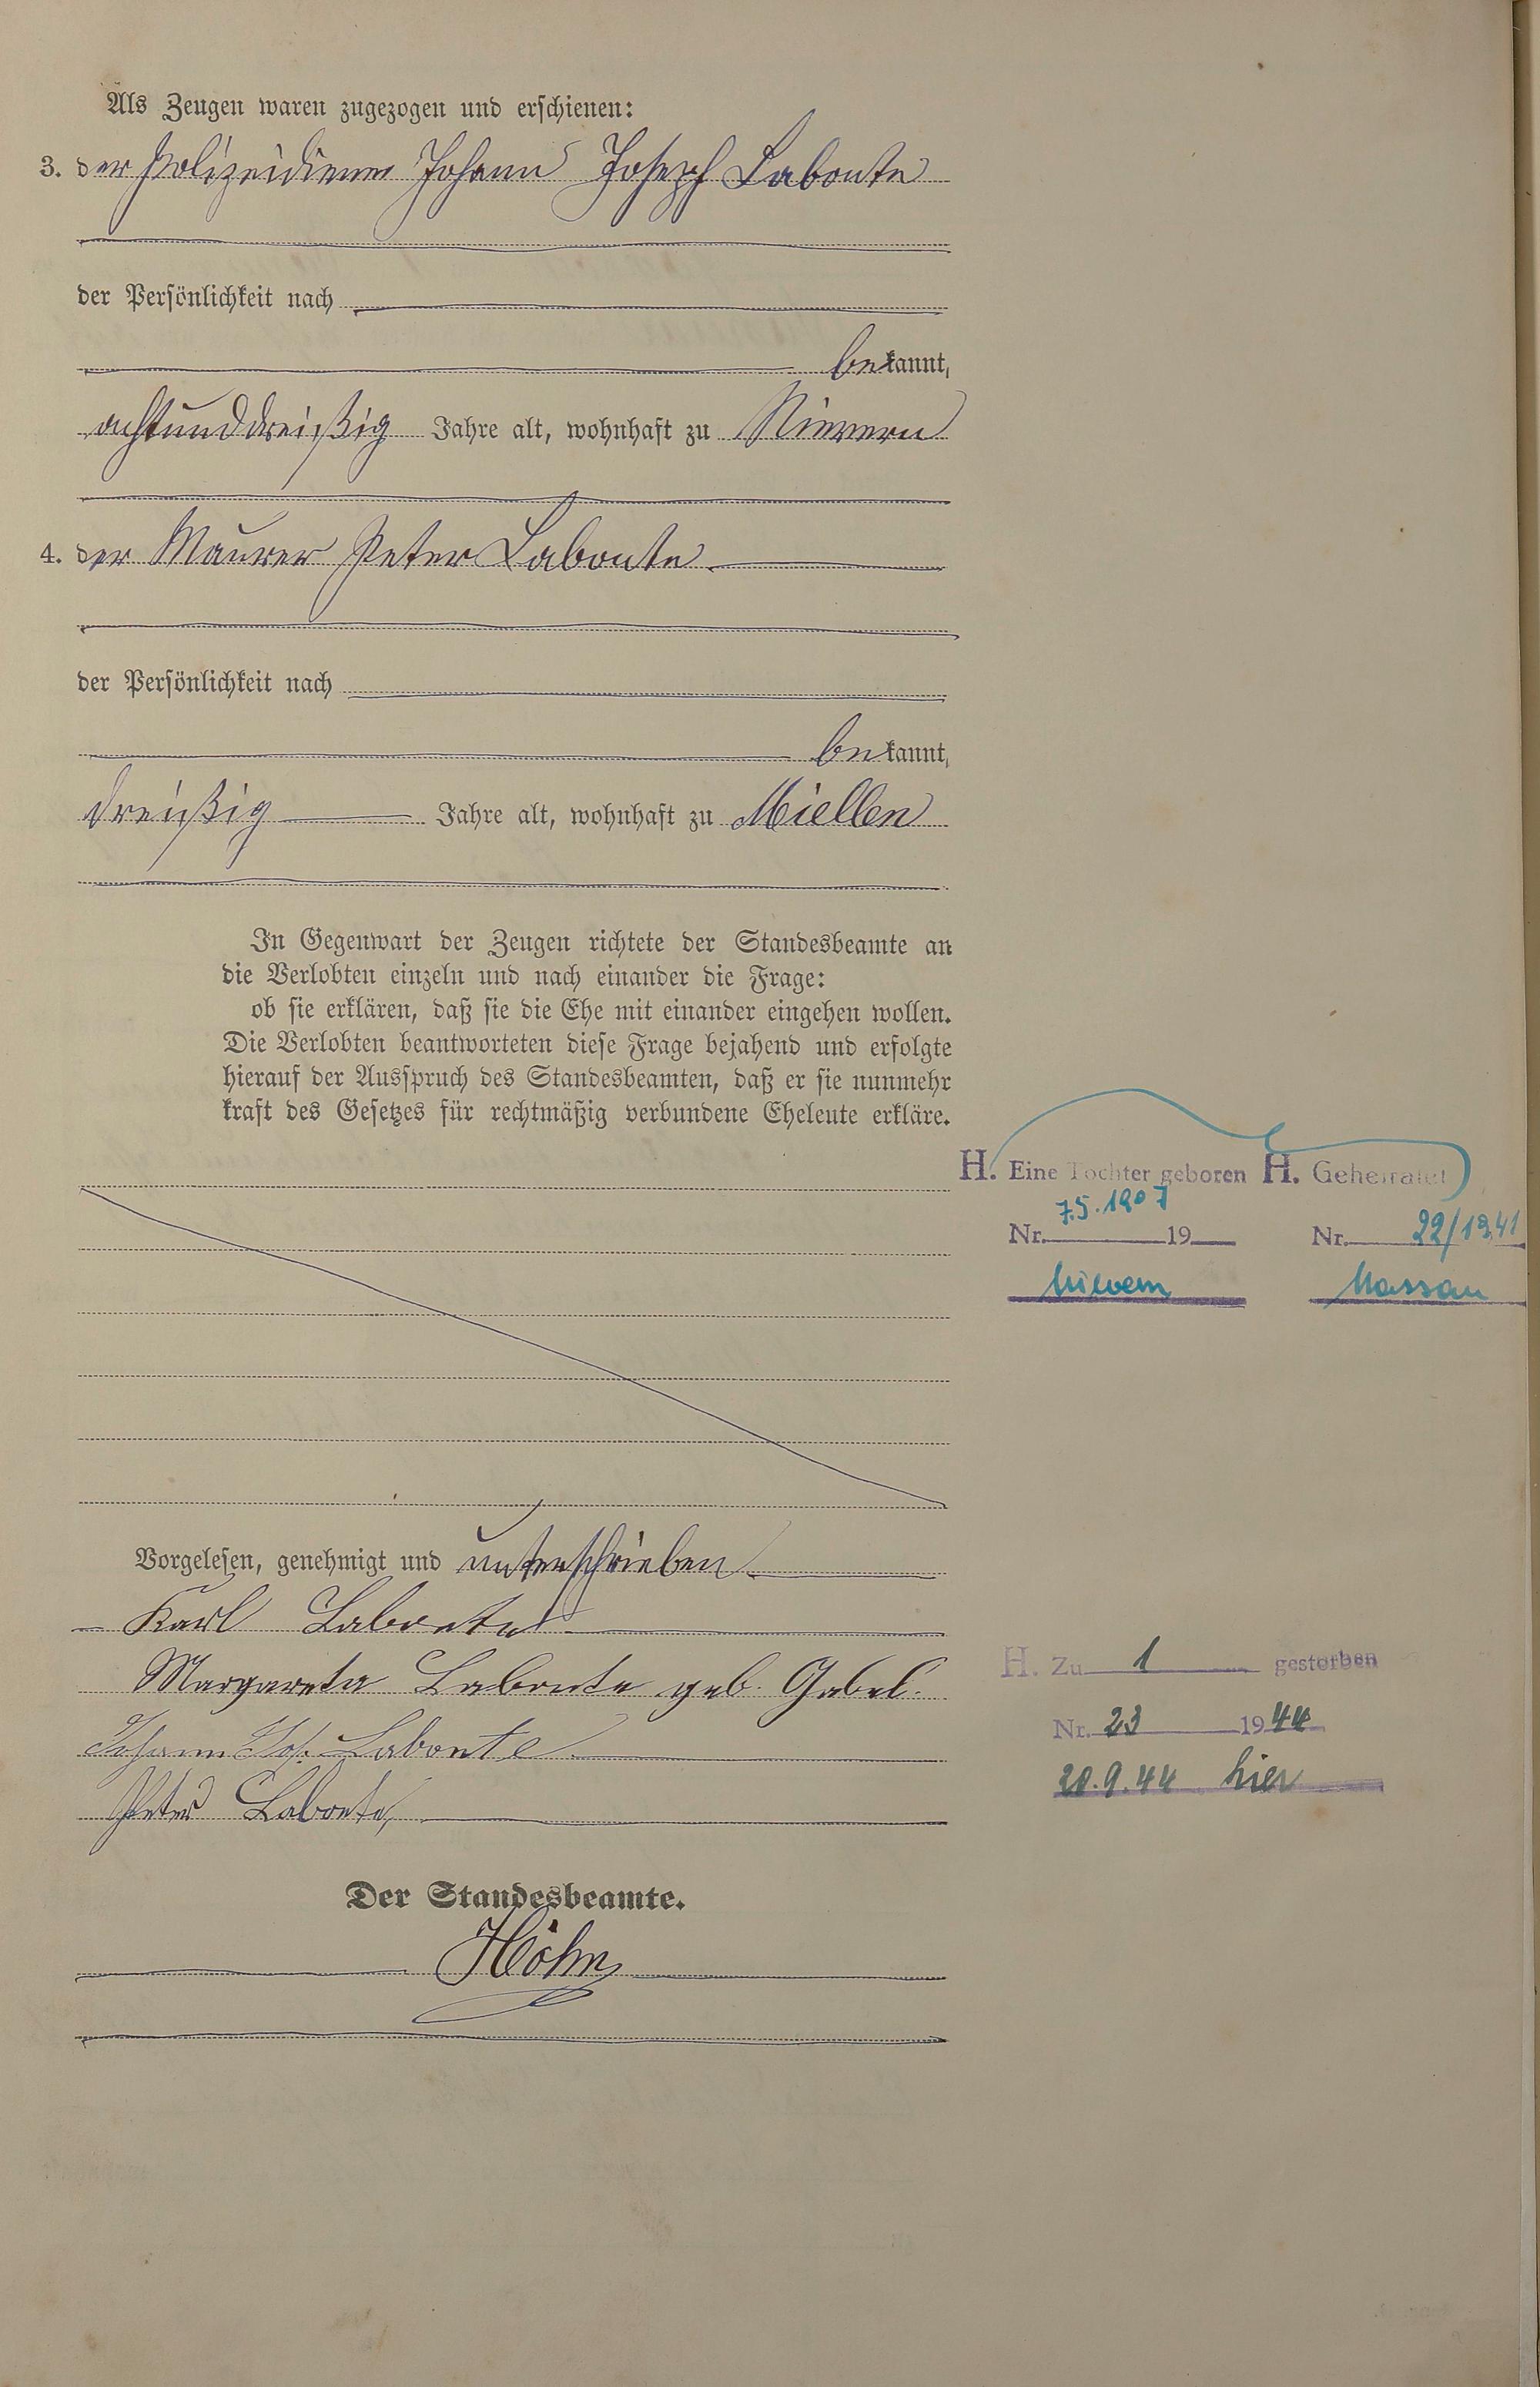 Als Zeugen waren zugezogen und erschienen:
3. der Polizeidiener Johann Joseph Labonte
der Persönlichkeit nach
bekannt,
achtunddreißig Jahre alt, wohnhaft zu Nievern
4. der Maurer Peter Labonte
der Persönlichkeit nach
bekannt,
dreißig Jahre alt, wohnhaft zu Miellen
In Gegenwart der Zeugen richtete der Standesbeamte an
die Verlobten einzeln und nach einander die Frage:
ob sie erklären, daß sie die Ehe mit einander eingehen wollen.
Die Verlobten beantworteten diese Frage bejahend und erfolgte
hierauf der Ausspruch des Standesbeamten, daß er sie nunmehr
kraft des Gesetzes für rechtmäßig verbundene Eheleute erkläre.
H. Eine Tochter geboren
7.5.1907
Nr. 19
Nievern
H. Geheiratet
Nr. 22/1941
Nassau
Vorgelesen, genehmigt und unterschrieben
Karl Labonte
Margareta Labonte geb. Gabel.
Johann Jos. Labonte
Peter Labonte
H. Zu 1 gestorben
Nr. 23 1944
20.9.44 hier
Der Standesbeamte.
Höhn